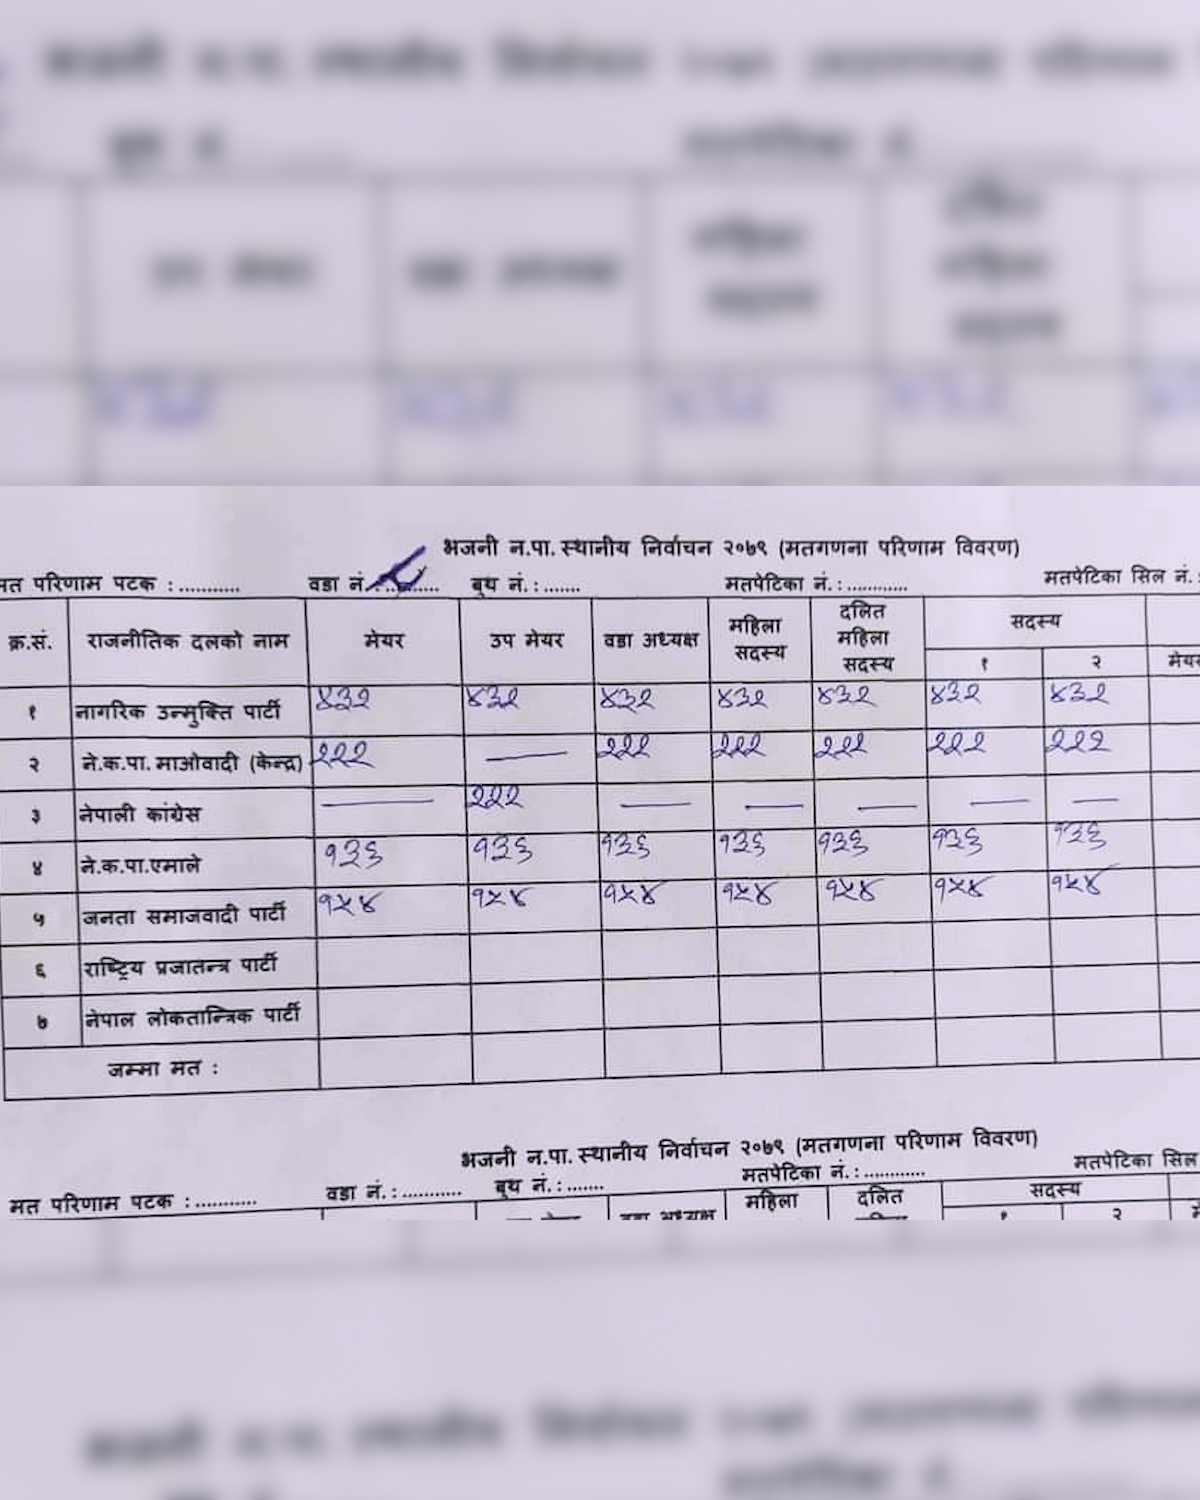 भजनी न.पा. स्थानीय निर्वाचन २०७९ (मतगणना परिणाम विवरण)
मत परिणाम पटक : ........... वडा नं. बुथ नं. : ....... मतपेटिका नं. : ............ मतपेटिका सिल नं. :
क्र.सं. राजनीतिक दलको नाम मेयर उप मेयर वडा अध्यक्ष महिला सदस्य दलित महिला सदस्य सदस्य १ २ मेयर
१ नागरिक उन्मुक्ति पार्टी ४३२ ४३२ ४३२ ४३२ ४३२ ४३२ ४३२
२ ने.क.पा. माओवादी (केन्द्र) २२२ — २२२ २२२ २२२ २२२ २२२
३ नेपाली कांग्रेस — २२२ — — — — —
४ ने.क.पा.एमाले १३६ १३६ १३६ १३६ १३६ १३६ १३६
५ जनता समाजवादी पार्टी १५४ १५४ १५४ १५४ १५४ १५४ १५४
६ राष्ट्रिय प्रजातन्त्र पार्टी
७ नेपाल लोकतान्त्रिक पार्टी
जम्मा मत :
भजनी न.पा. स्थानीय निर्वाचन २०७९ (मतगणना परिणाम विवरण)
मत परिणाम पटक : ........... वडा नं. : ........... बुथ नं. : ....... मतपेटिका नं. : ............ मतपेटिका सिल
वडा अध्यक्ष महिला दलित सदस्य १ २